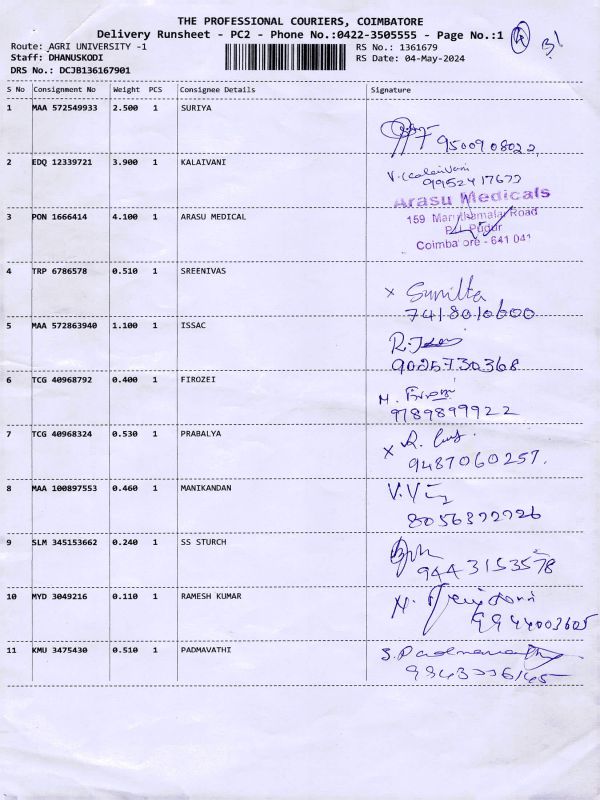 THE PROFESSIONAL COURIERS, COIMBATORE
Delivery Runsheet - PC2 - Phone No.:0422-3505555 - Page No.:1
Route: AGRI UNIVERSITY -1
RS No.: 1361679
Staff: DHANUSKODI
RS Date: 04-May-2024
DRS No.: DCJB136167901
S No Consignment No Weight PCS Consignee Details Signature
1 MAA 572549933 2.500 1 SURIYA
9500908022,
2 EDQ 12339721 3.900 1 KALAIVANI
V. Kalaivani
9952417677
Arasu Medicals
3 PON 1666414 4.100 1 ARASU MEDICAL
159 Maruthamalai Road
P.N. Pudur
Coimbatore - 641 041
4 TRP 6786578 0.510 1 SREENIVAS
x Sumitta
7418010600
5 MAA 572863940 1.100 1 ISSAC
9025730368
6 TCG 40968792 0.400 1 FIROZEI
9789899922
7 TCG 40968324 0.530 1 PRABALYA
x R.
9487060257.
8 MAA 100897553 0.460 1 MANIKANDAN
8056372726
9 SLM 345153662 0.240 1 SS STURCH
9443153578
10 MYD 3049216 0.110 1 RAMESH KUMAR
9944003605
11 KMU 3475430 0.510 1 PADMAVATHI
S. Padmavathy